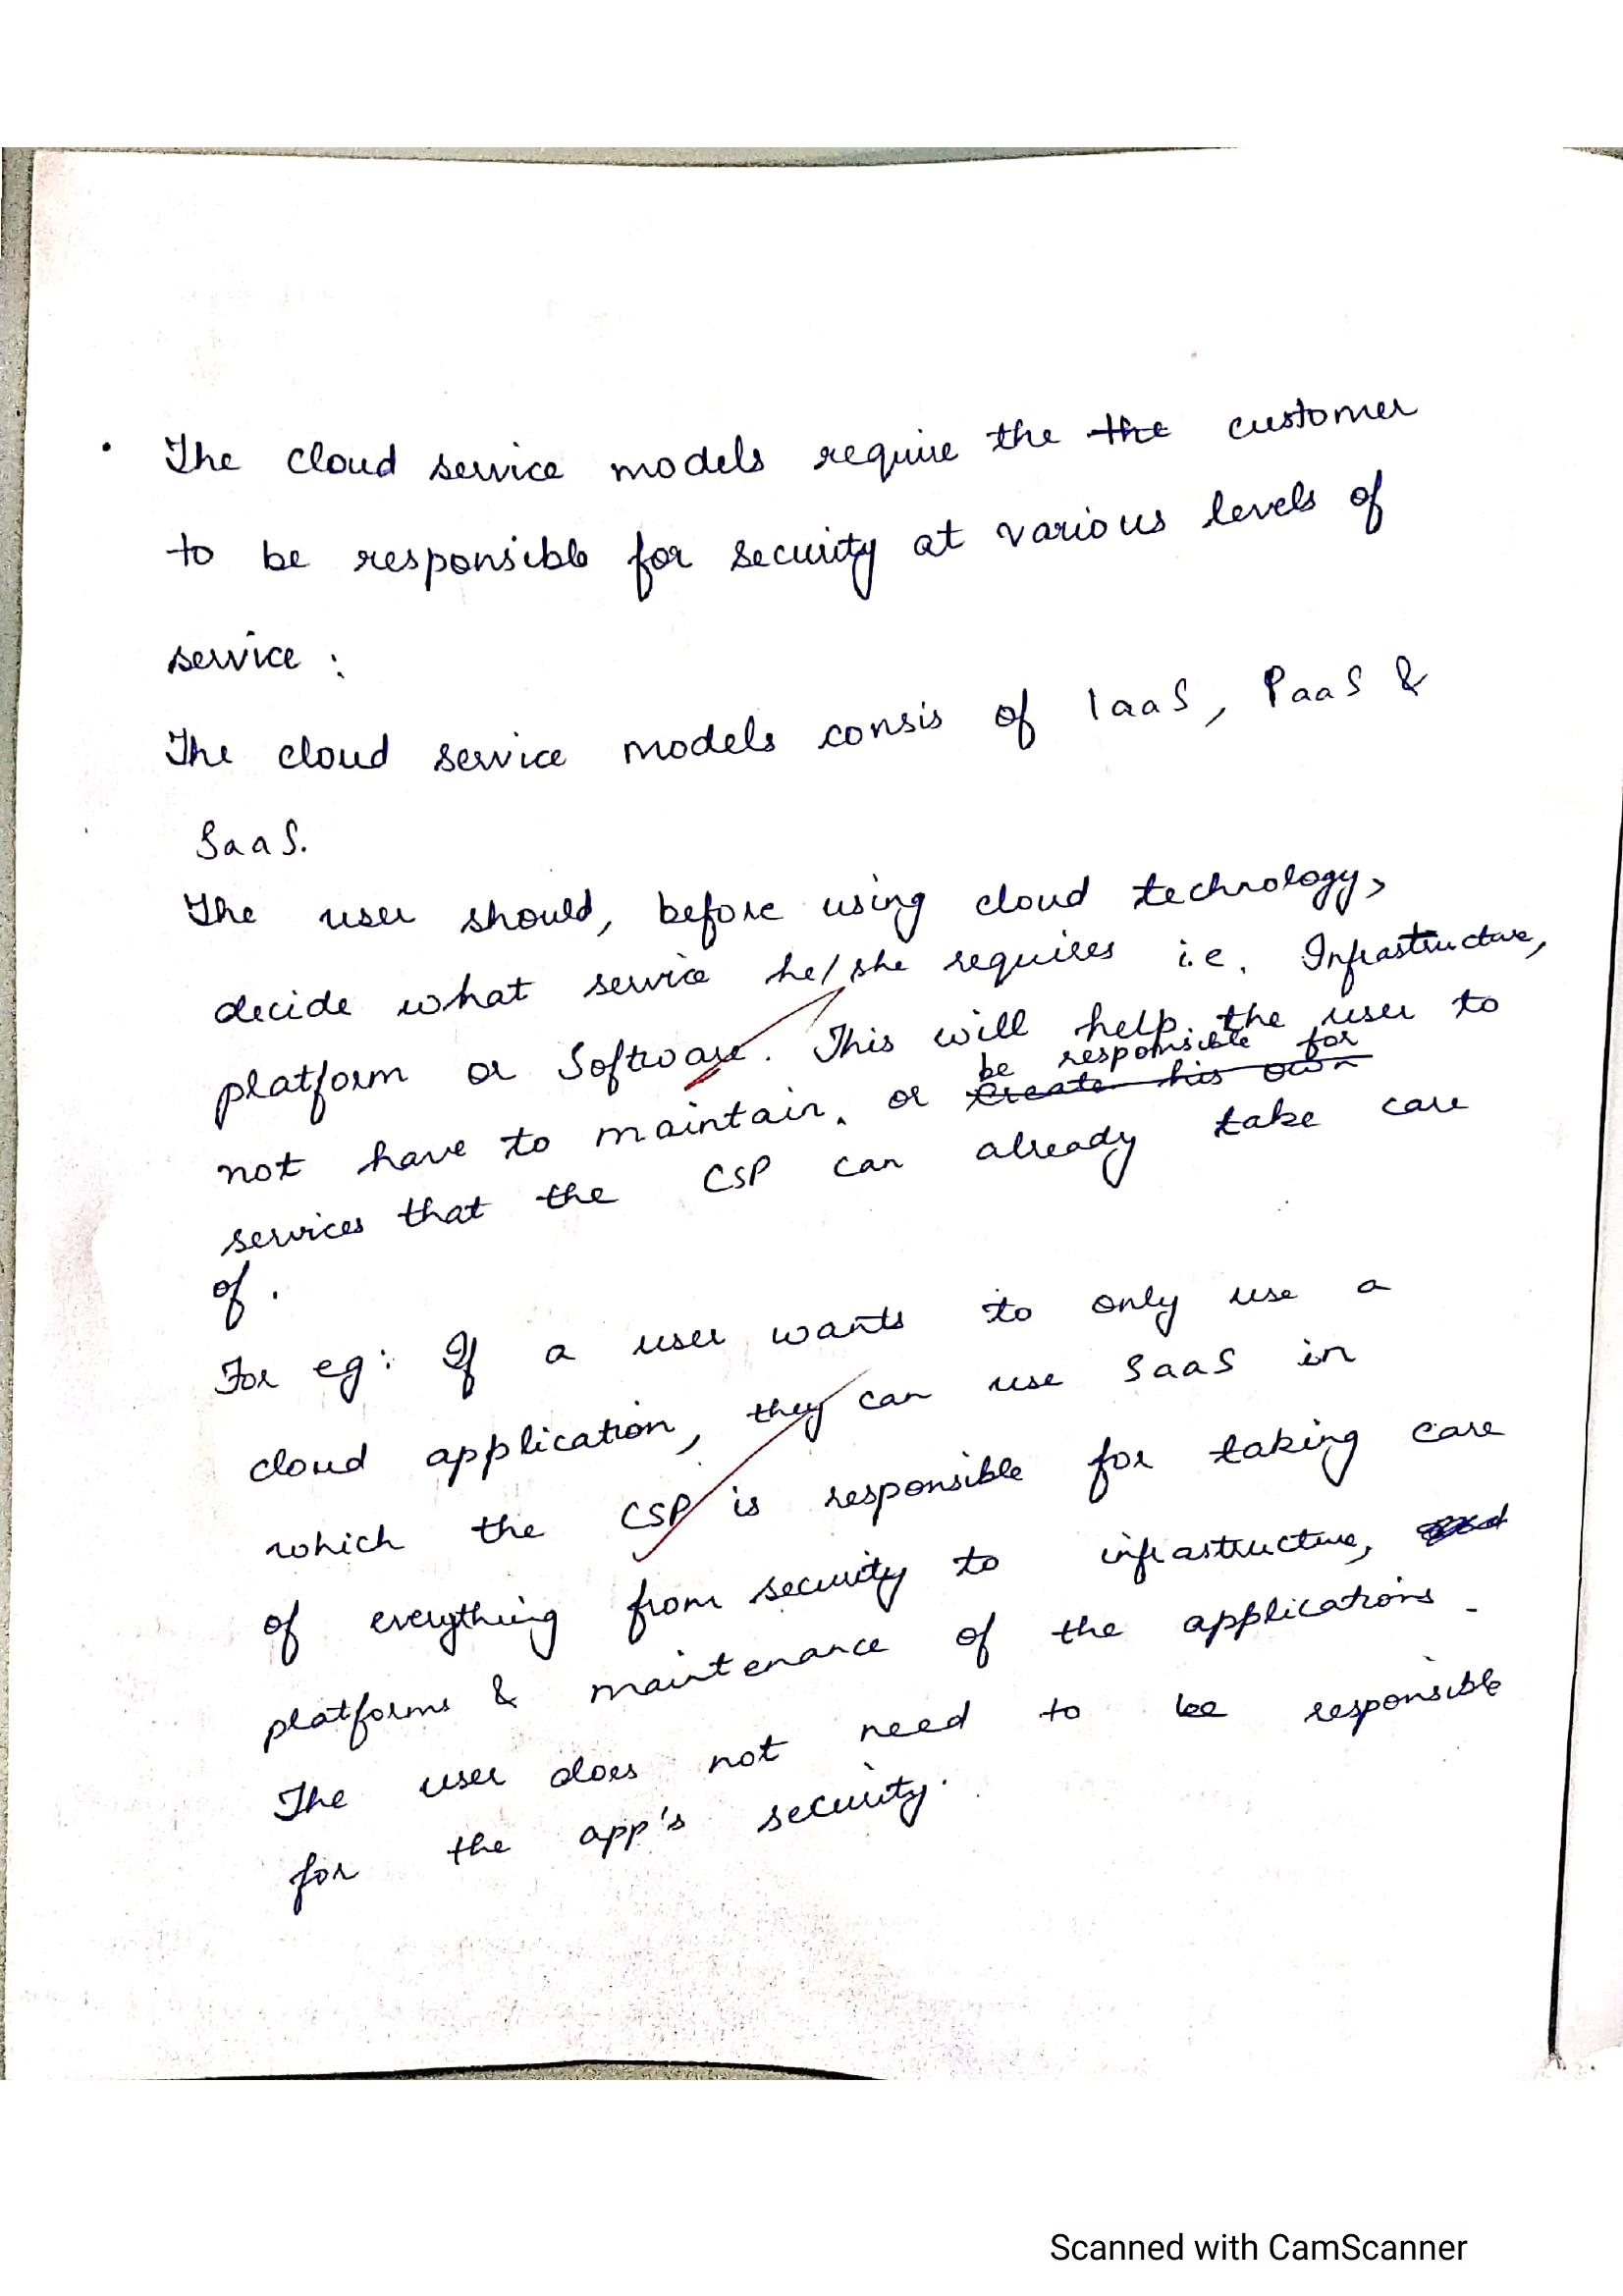 • The cloud service models require the the customer
to be responsible for security at various levels of
service :
The cloud service models consis of IaaS, PaaS &
SaaS.
The user should, before using cloud technology,
decide what service he/she requires i.e. Infrastructure,
platform or Software. This will help the user to
be responsible for
not have to maintain, or create his own
services that the CSP can already take care
of.
For eg: If a user wants to only use a
cloud application, they can use SaaS in
which the CSP is responsible for taking care
of everything from security to infrastructure,
platforms & maintenance of the applications.
The user does not need to be responsible
for the app's security.
Scanned with CamScanner